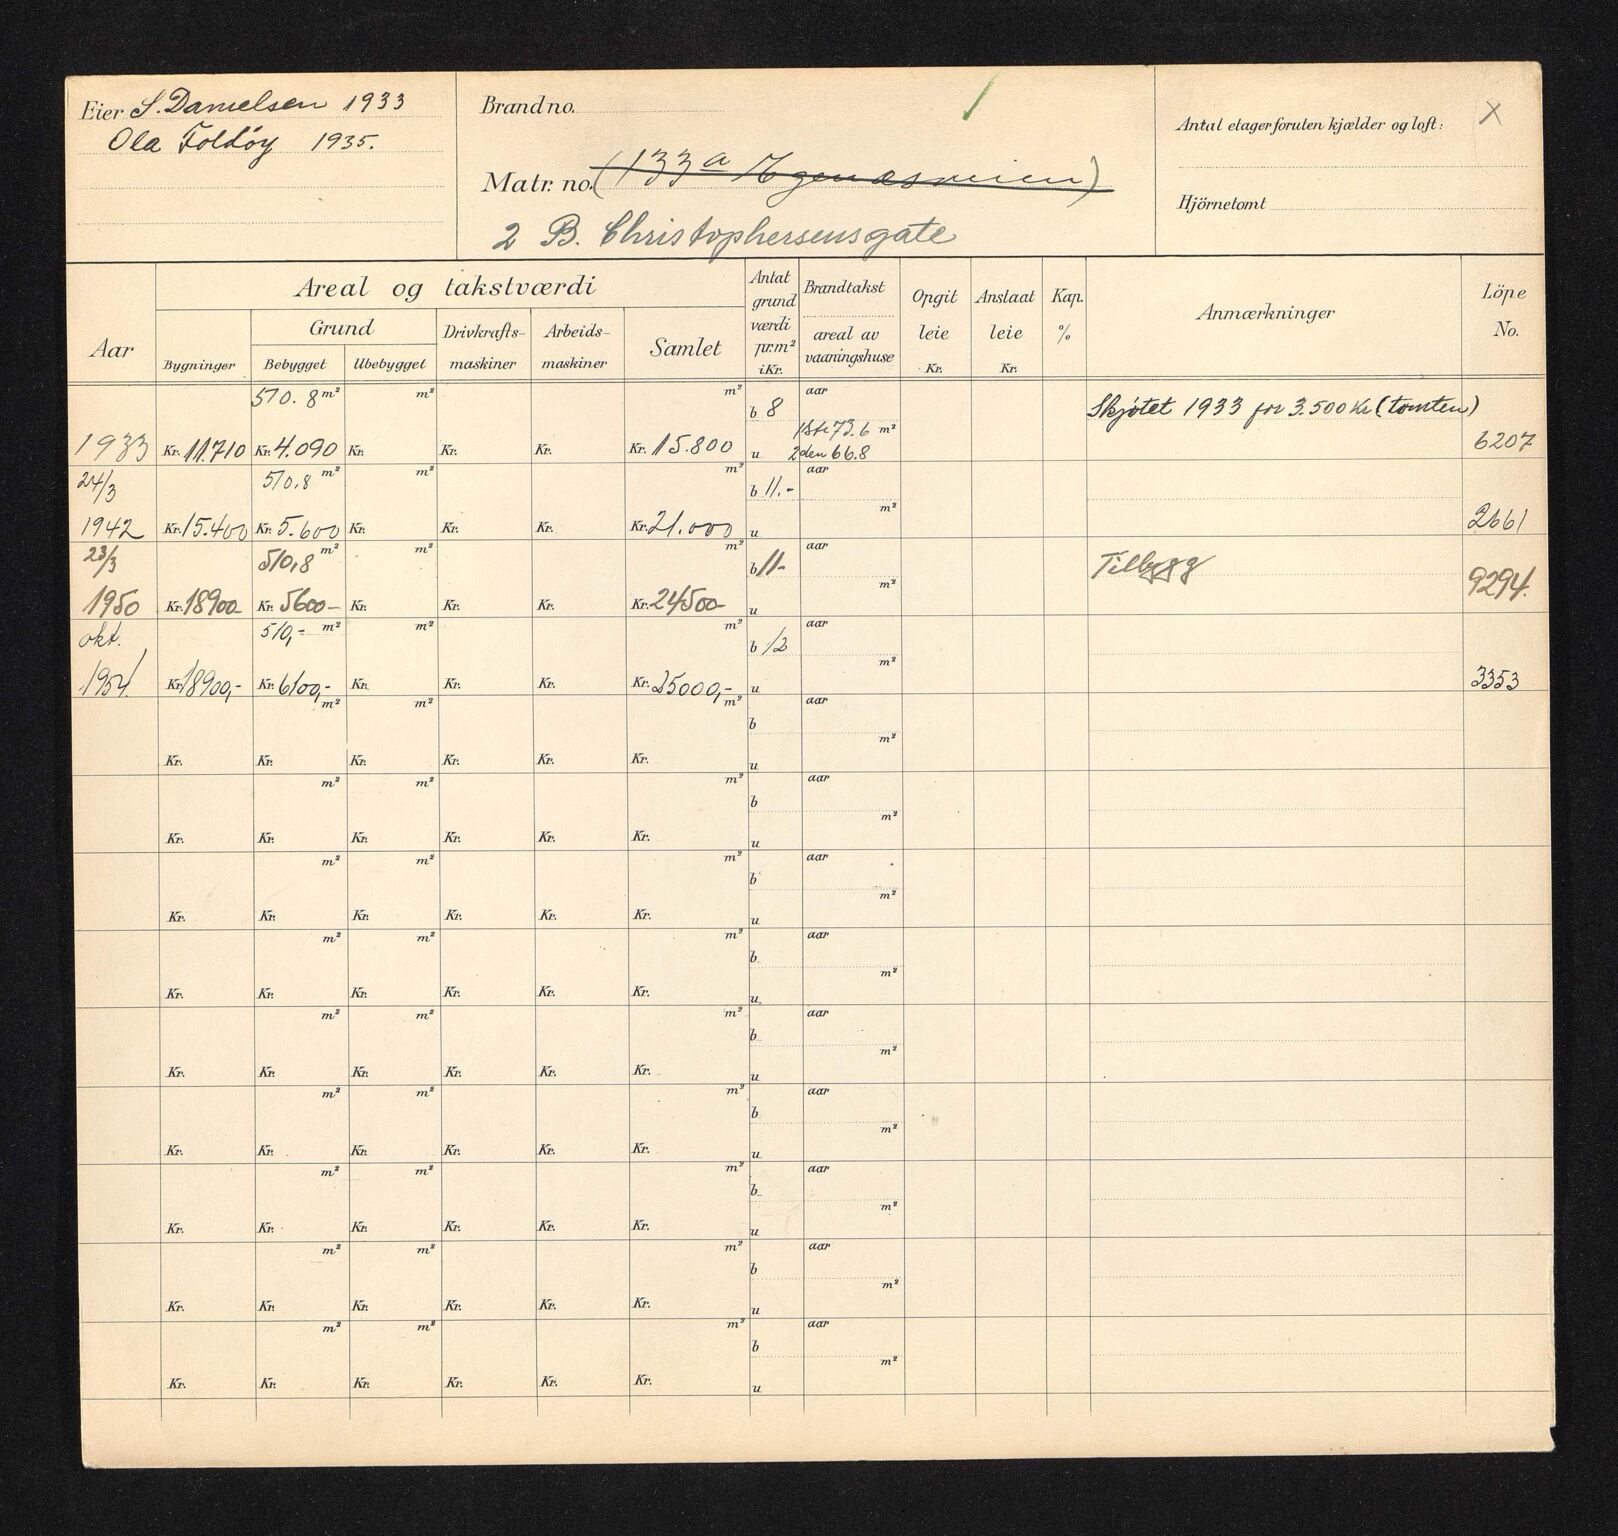 Eier S. Danielsen 1933
Ola Foldöy 1935.
Brand no.
Matr. no. (133a Egenæsveien)
2 B. Christophersensgate
Antal etager foruten kjælder og loft: X
Hjörnetomt
Aar
Areal og takstværdi
Bygninger
Grund
Bebygget
Ubebygget
Drivkrafts-maskiner
Arbeids-maskiner
Samlet
Antat grund værdi pr. m² i Kr.
Brandtakst
areal av vaaningshuse
Opgit leie Kr.
Anslaat leie Kr.
Kap. %
Anmærkninger
Löpe No.
510.8 m² m² m² b 8 aar Skjøtet 1933 for 3.500 Kr (tomten)
1ste 73.6 m²
1933 Kr. 11.710 Kr. 4.090 Kr. Kr. Kr. Kr. 15.800 u 2den 66.8 6207
24/3 510,8 m² m² m² b 11.- aar
m²
1942 Kr. 15.400 Kr. 5.600 Kr. Kr. Kr. Kr. 21.000 u 2661
23/3 510,8 m² m² m² b 11- aar Tilbygg
m²
1950 Kr. 18900- Kr. 5600- Kr. Kr. Kr. Kr. 24500- u 9294.
okt. 510,- m² m² m² b 12 aar
m²
1954. Kr. 18900,- Kr. 6100,- Kr. Kr. Kr. Kr. 25000,- u 3353
m² m² m² b aar
m²
Kr. Kr. Kr. Kr. Kr. Kr. u
m² m² m² b aar
m²
Kr. Kr. Kr. Kr. Kr. Kr. u
m² m² m² b aar
m²
Kr. Kr. Kr. Kr. Kr. Kr. u
m² m² m² b aar
m²
Kr. Kr. Kr. Kr. Kr. Kr. u
m² m² m² b aar
m²
Kr. Kr. Kr. Kr. Kr. Kr. u
m² m² m² b aar
m²
Kr. Kr. Kr. Kr. Kr. Kr. u
m² m² m² b aar
m²
Kr. Kr. Kr. Kr. Kr. Kr. u
m² m² m² b aar
m²
Kr. Kr. Kr. Kr. Kr. Kr. u
m² m² m² b aar
m²
Kr. Kr. Kr. Kr. Kr. Kr. u